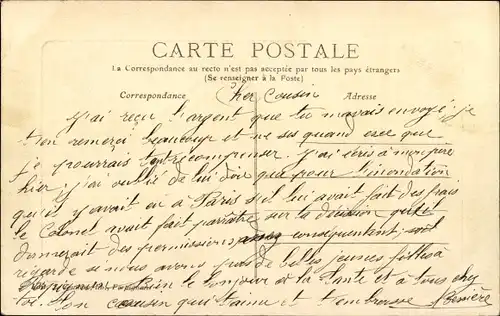 CARTE POSTALE
La Correspondance au recto n'est pas acceptée par tous les pays étrangers
(Se renseigner à la Poste)
Correspondance
Adresse
Cher Cousin
J'ai reçu l'argent que tu m'avais envoyé je
t'en remerci beaucoup et ne ses quand esce que
je pourrais t'en récompenser. J'ai écris à mon père
hier j'ai oublié de lui dire que pour l'inondation
qu'il y avait eu à Paris s'il lui avait fait des frais
le Colonel avait fait paraître sur la décision qu'il
donnerait des permissions conséquentent
regarde si nous avons pas de belles jeunes filles à
bien le bonjour à la Tante et à tous chez
toi. Ton cousin qui t'aime et t'embrasse